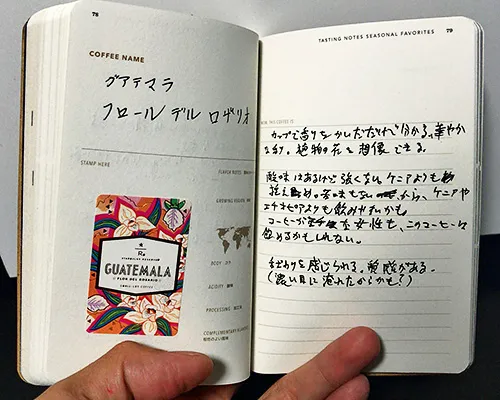 78
COFFEE NAME
グアテマラ
フロール デル ロザリオ
STAMP HERE
FLAVOR NOTES
GROWING REGION
BODY コク
ACIDITY 酸味
PROCESSING
COMPLEMENTARY FLAVORS
相性のよい風味
STARBUCKS RESERVE
GUATEMALA
FLOR DEL ROSARIO
SMALL-LOT COFFEE
TASTING NOTES SEASONAL FAVORITES
79
カップで香りをかいだだけで分かる、華やか
な香り。植物の花を想像できる。
酸味はあるけど強くない。ケニアよりも
控えめ。苦味もない から、ケニアや
エチオピアよりも飲みやすいかも
コーヒーが 女性も、このコーヒーは
飲めるかもしれない。
を感じられる。質感がある。
(濃い目に淹れたからかも?)